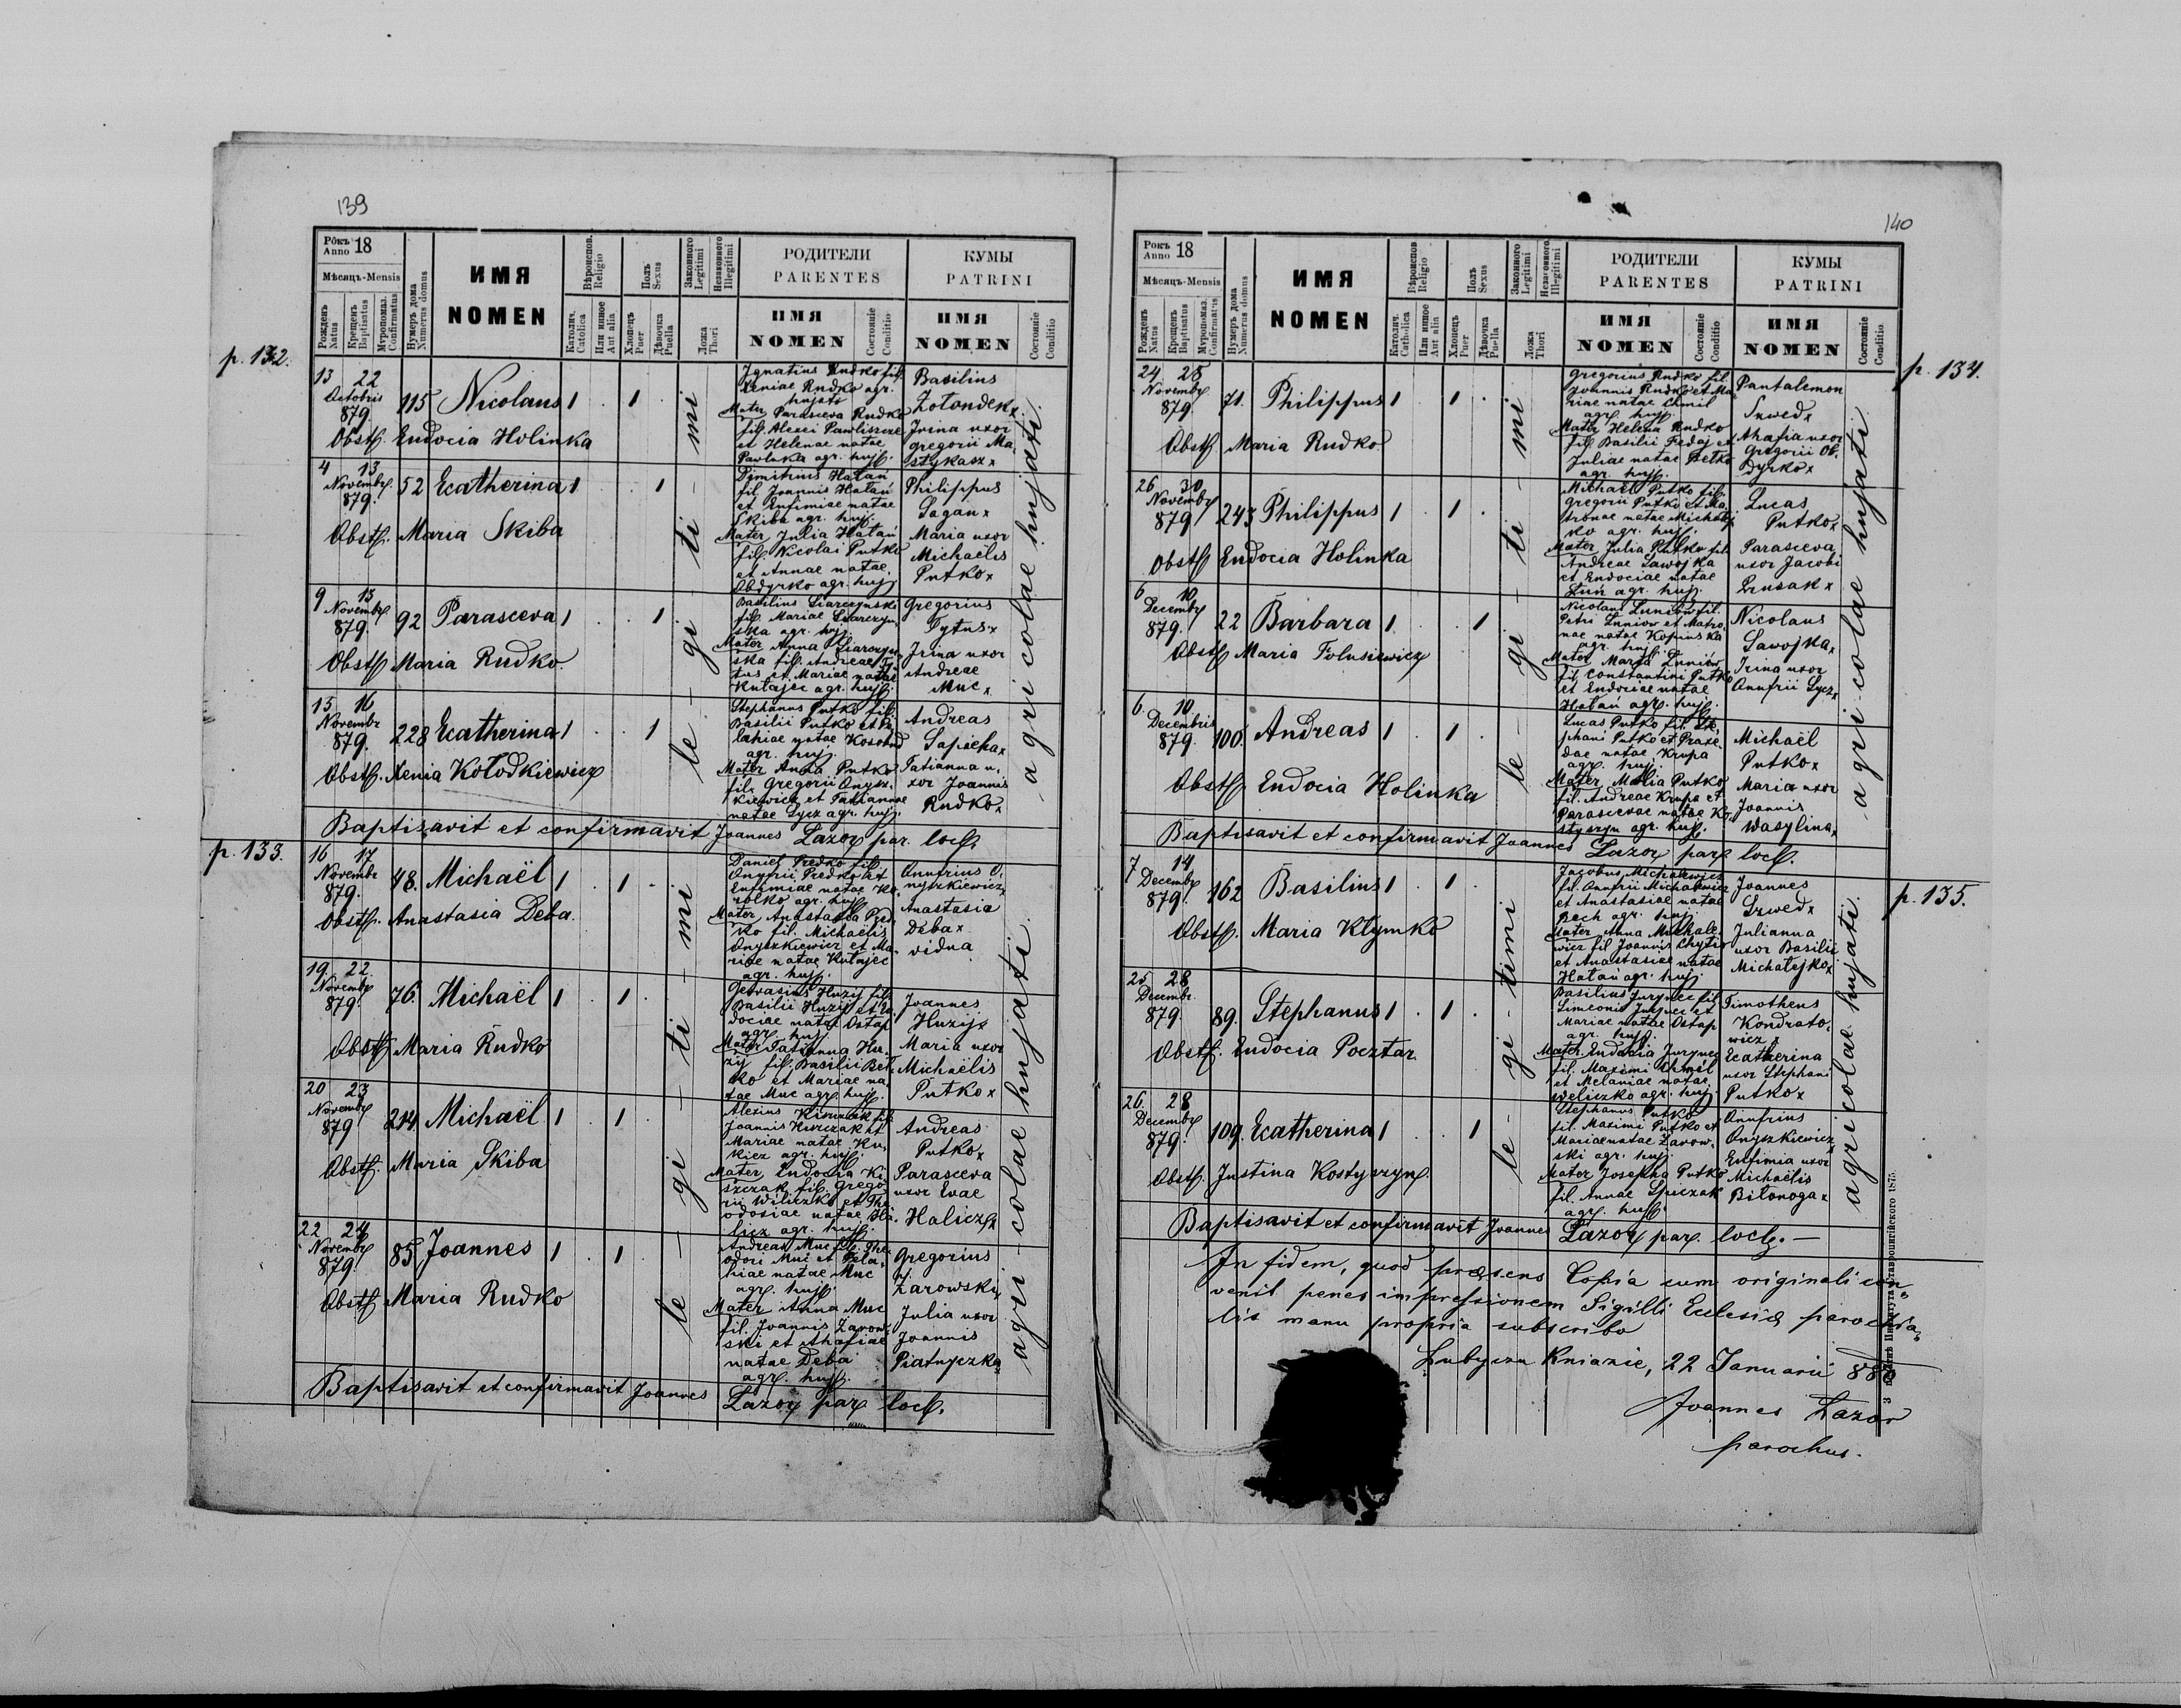 139
Рôкъ 18
Anno
Мѣсяцъ-Mensis
Рожденъ Natus
Крещенъ Baptisatus
Мυропомаз. Confirmatus
Нумеръ дома Numerus domus
ИМЯ
NOMEN
Вѣроиспов. Religio
Католич. Catolica
Или иное Aut alia
Полъ Sexus
Хлопецъ Puer
Дѣвочка Puella
Законного Legitimi
Незаконного Illegitimi
Ложа Thori
РОДИТЕЛИ
PARENTES
ИМЯ
NOMEN
Состоянiе Conditio
КУМЫ
PATRINI
ИМЯ
NOMEN
Состоянiе Conditio
p. 132.
13 22
Octobris
879.
115 Nicolaus 1 . 1 .
Obstf. Eudocia Holinka
Ignatius Rudko fil.
Xeniae Rudko agr.
hujats
Mater Parasceva Rudko
fil. Alexei Pawliszcze
et Helenae natae
Pavluka agr. hujf.
Basilius
Zołondek x
Irina uxor
Gregorii Ma,
stykasz x
4 13
Novembr.
879.
52 Ecatherina 1 . . 1
Obstf. Maria Skiba
Dimitrius Hałań
fil. Joannis Hałań
et Eufimiae natae
Skiba agr. huj.
Mater Julia Hałań
fil. Nicolai Putko
et Annae natae
Obdyrko agr. huj
Philippus
Sagan x
Maria uxor
Michaëlis
Putko x
9 13
Novembr
879.
92 Parasceva 1 . . 1
Obstf Maria Rudko.
Basilius Siarczynski
fil. Mariae Siarczyn,
ska agr. huj.
Mater Anna Siarczyn,
ska fil. Andreae Ty,
tus et Mariae natae
Kutajec agr. hujf.
Gregorius
Tytus x
Irina uxor
Andreae
Muc x
15 16
Novembr
879.
228 Ecatherina 1 . . 1
Obstf. Xenia Kołodkiewicz
Stephanus Putko fil.
Basilii Putko et Pe,
lahiae natae Kosobud
agr. huj.
Mater Anna Putko
fil. Gregorii Onysz,
kiewicz et Tatiannae
natae Sycz agr. huj.
Andreas
Sapieha x
Tatianna u,
xor Joannis
Rudko x
le - gi - ti - mi
agricolae hujati.
Baptisavit et confirmavit Joannes Łazor par. locf.
p. 133.
16 17
Novembr
879.
48. Michaël 1 . 1 .
Obstf. Anastasia Deba.
Daniel Predko fil.
Onufrii Predko et
Eufimiae natae Ko,
rolko agr. huj.
Mater Anastasia Pred,
ko fil. Michaëlis
Onyszkiewicz et Ma,
riae natae Kutajec
agr. huj.
Onufrius O,
nyszkiewicz
Anastasia
Deba x
vidua
19. 22.
Novembr
879.
76. Michaël 1 . 1 .
Obstf Maria Rudko
Gervasius Huzij fil.
Basilii Huzij et Eu,
dociae natae Ostap
agr. huj
Mater Tatianna Hu,
zij fil. Basilii Bet,
ko et Mariae na,
tae Muc agr. huj.
Joannes
Huzij x
Maria uxor
Michaëlis
Putko x
20 23
Novembr
879
214 Michaël 1 . 1
Obstf. Maria Skiba
Alexius
Joannis et
Mariae natae Ku,
kiez agr. huj.
Mater Eudocia Ki,
szczak fil. Grego,
rii Wiliczko et The,
odosiae natae Ha,
licz agr. huj.
Andreas
Putko x
Parasceva
uxor Evae
Halicz x
22 24
Novembr
879.
85. Joannes 1 . 1
Obstf Maria Rudko
Andreas Muc fil. The,
odori Muc et Pela,
hiae natae Muc
agr. huj.
Mater Anna Muc
fil. Joannis Zarow,
ski et Ahafiae
natae Deba
agr. huj.
Gregorius
Zarowski x
Julia uxor
Joannis
Piatnyczka x
le - gi - ti - mi
agricolae hujati.
Baptisavit et confirmavit Joannes Łazor par locf.
140
Рокъ 18
Anno
Мѣсяцъ-Mensis
Рожденъ Natus
Крещенъ Baptisatus
Мυропомаз. Confirmatus
Нумеръ дома Numerus domus
ИМЯ
NOMEN
Вѣроиспов Religio
Католич. Catholica
Или иное Aut alia
Полъ Sexus
Хлопецъ Puer
Дѣвочка Puella
Законного Legitimi
Незаконного Illegitimi
Ложа Thori
РОДИТЕЛИ
PARENTES
ИМЯ
NOMEN
Состоянiе Conditio
КУМЫ
PATRINI
ИМЯ
NOMEN
Состоянiе Conditio.
p. 134.
24. 28
Novembr
879.
71. Philippus 1 . 1 .
Obstf Maria Rudko
Gregorius Rudko fil.
Joannis Rudko et Ma,
riae natae Chmil
agr. huj.
Mater Helena Rudko
fil Basilii Fedaj et
Juliae natae Betko
agr. huj.
Pantalemon
Szwed x
Ahafia uxor
Gregorii Ob,
dyrko x
26 30
Novembr
879
243 Philippus 1 . 1 .
Obstf Eudocia Holinka
Michaël Putko fil.
Gregorii Putko et Ma,
tronae natae Michatej,
ko agr. huj.
Mater Julia Putko fil
Andreae Sawojka
et Eudociae natae
Łuń agr. huj.
Lucas
Putko x
Parasceva
uxor Jacobi
Prusak x
6 10
Decembr
879.
22 Barbara 1 . . 1
Obstf Maria Tolusiewicz
Nicolaus Luniow fil.
Petri Luniow et Matro,
nae natae Kopiuska
agr. huj.
Mater Maria Luniów
fil. Constantini Putko
et Eudociae natae
Hałań agr. huj.
Nicolaus
Sawojka x
Irina uxor
Onufrii Sycz x
6. 10
Decembris
879.
100. Andreas 1 . 1 .
Obstf. Eudocia Holinka
Lucas Putko fil. Ste,
phani Putko et Praxe,
dae natae Krupa
agr. huj.
Mater Maria Putko
fil. Andreae Krupa et
Parascevae natae Ko,
styszyn agr. huj.
Michaël
Putko x
Maria uxor
Joannis
Wasylina x
le - gi - ti - mi
agricolae hujati
Baptisavit et confirmavit Joannes Łazor par locf.
p. 135.
7 14
Decembr
879.
162 Basilius 1 . 1 .
Obstf. Maria Kłymko
Jacobus Michalewicz
fil. Onufrii Michalewicz
et Anastasiae natae
Rech agr. huj
Mater Anna Michale,
wicz fil Joannis Chytro
et Anastasiae natae
Hałań agr. huj.
Joannes
Szwed x
Julianna
uxor Basilii
Michatejko x
25 28
Decembr.
879.
89. Stephanus 1 . 1 .
Obstf. Eudocia Pocztar.
Basilius Jurynec fil
Simeonis Jurynec et
Mariae natae Ostap
agr. huj.
Mater Eudocia Jurynec
fil. Maximi Chmil
et Melaniae natae
Weliczko agr. huj.
Timotheus
Kondrato,
wicz x
Ecatherina
uxor Stephani
Putko x
26. 28
Decembr
879.
109. Ecatherina 1 . . 1
Obstf. Justina Kostyszyn.
Stephanus Putko
fil. Maximi Putko et
Mariae natae Zarow,
ski agr. huj.
Mater Josepha Putko
fil. Annae Spuczak
agr. huj
Onufrius
Onyszkiewicz x
Eufimia uxor
Michaëlis
Biłonoga x
le - gi - timi
agricolae hujati.
Baptisavit et confirmavit Joannes Łazor par. locf. —
In fidem, quod præsens Copia cum originali con,
venit penes impressionem Sigilli Ecclesiæ parochia,
lis manu propria subscribo
Lubycza Kniazie, 22 Januarii 880
Joannes Łazor
parochus.